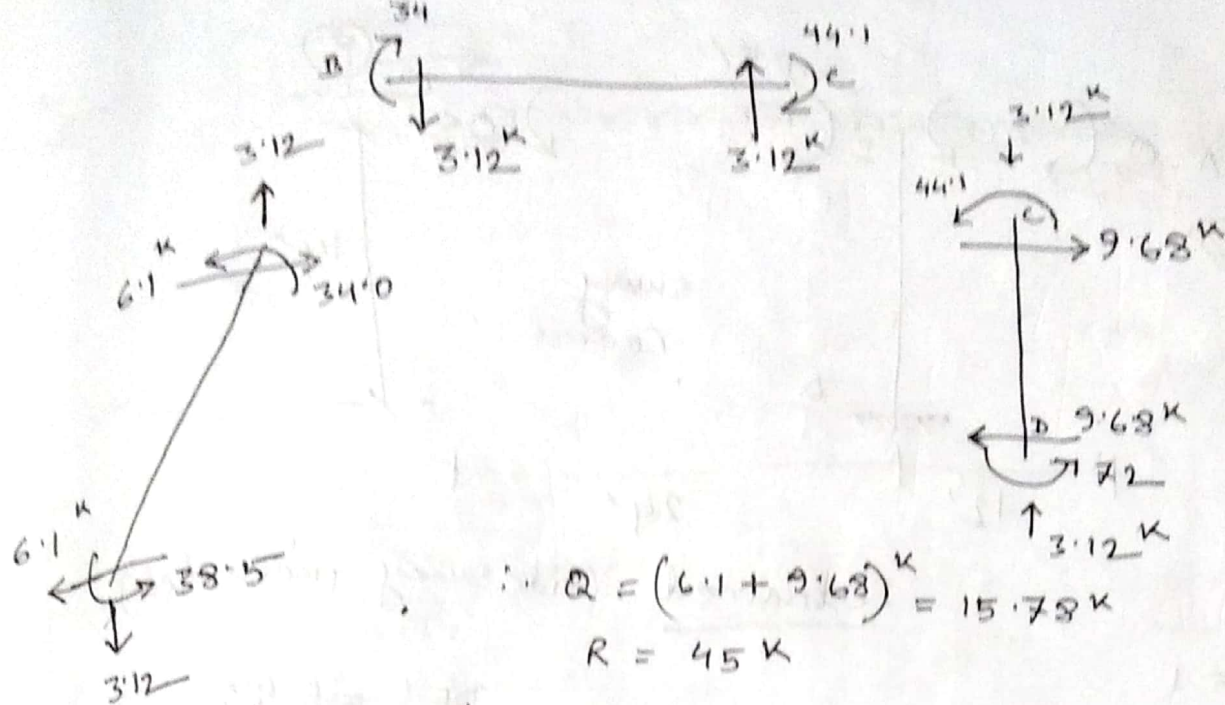 34
44.1
B
C
3.12ᴷ
3.12ᴷ
3.12
6.1ᴷ
34.0
6.1ᴷ
38.5
3.12
3.12ᴷ
44.1
C
9.68ᴷ
D 9.68ᴷ
72
3.12ᴷ
∴ Q = (6.1 + 9.68)ᴷ = 15.78ᴷ
R = 45 K